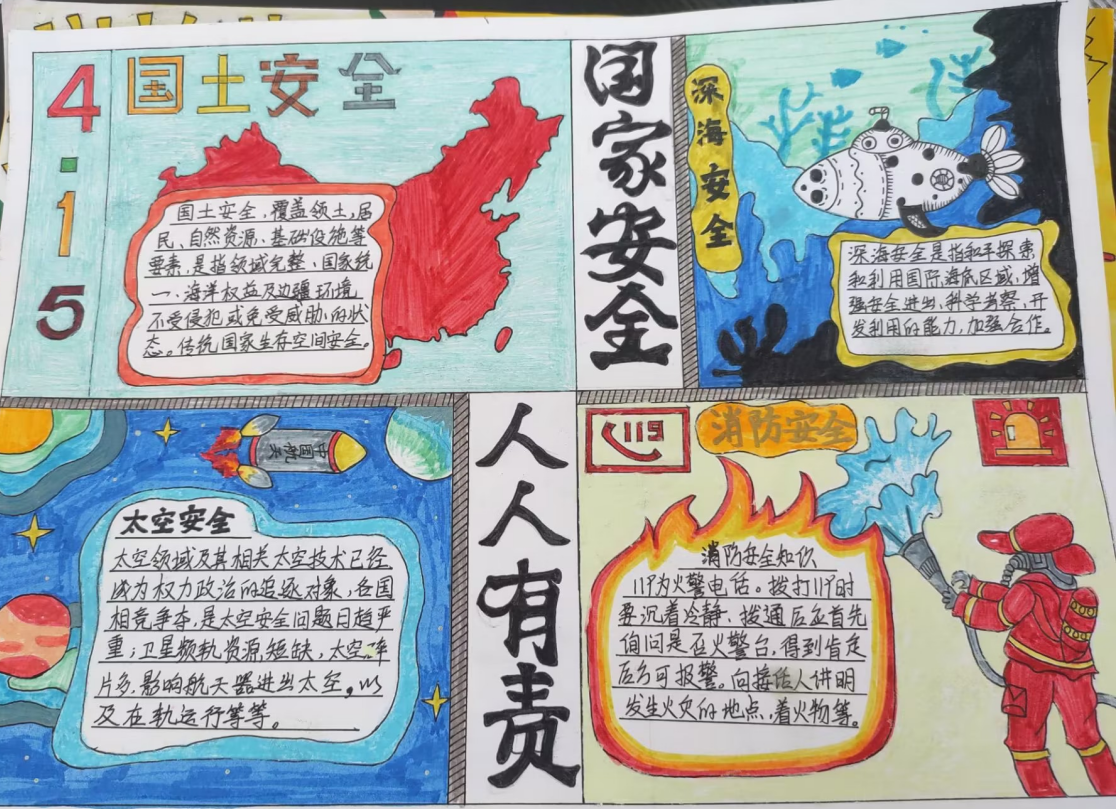 4·15
国土安全
国土安全,覆盖领土,居
民、自然资源、基础设施等
要素,是指领域完整、国家统
一、海洋权益及边疆环境
不受侵犯或免受威胁的状
态。传统国家生存空间安全。
国家安全
深海安全
深海安全是指和平探索
和利用国际海底区域,增
强安全进出,科学考察,开
发利用的能力,加强合作。
中国航天
太空安全
太空领域及其相关太空技术已经
成为权力政治的追逐对象,各国
相竞争夺,是太空安全问题日趋严
重;卫星频轨资源短缺,太空碎
片多,影响航天器进出太空,以
及在轨运行等等。
人人有责
119
消防安全
消防安全知识
119为火警电话。拨打119时
要沉着冷静、拨通后应首先
询问是否火警台,得到肯定
后方可报警。向接话人讲明
发生火灾的地点,着火物等。